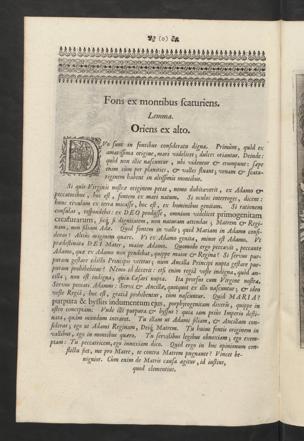 (o)
Fons ex montibus scaturiens.
Lemma.
Oriens ex alto.
Duo sunt in fontibus considerata digna. Primùm, quòd ex
amarissima origine, mari videlicet, dulces oriantur. Deinde:
quòd non illic nascantur, ubi videntur & erumpunt: sæpe
enim cùm per planities, & valles fluant, venam & scatu-
riginem habent in altissimis montibus.
Si quis Virginis nostræ originem petat, nemo dubitaverit, ex Adamo &
peccatoribus, hoc est, fontem ex mari natum. Si oculus interroges, dicent:
hunc rivulum ex terra micasse, hoc est, ex hominibus genitam. Si rationem
consulas, respondebit: ex DEO prodiisse, omnium videlicet primogenitam
creaturarum, seu, si dignitatem, non naturam attendas, Matrem & Regi-
nam, non filiam Adæ. Quod fontem in valle, quid Mariam in Adamo consi-
deras? altiùs originem quære. Vt ex Adamo genita, minor est Adamo. Vt
prædestinata DEI Mater, maior Adamo. Quomodo ergo peccavit peccante
Adamo, quæ ex Adamo non pendebat, quippe maior & Regina? Si servus pur-
puram gestare ædilis Principe vetetur; num Ancilla Principi nupta gestare pur-
puram prohibebitur? Nemo id dixerit: etsi enim regiâ veste indigna, quòd an-
cilla, non est indigna, quia Cæsari nupta. Ita prorsus cum Virgine nostra.
Servus peccans Adamus: Servi & Ancillæ, quotquot ex illo nascuntur, ex ideo
veste Regiâ; hoc est, gratiâ prohibentur, cùm nascuntur. Quid MARIAM
purpura & byssus indumentum ejus, porphyrogenitam deceris, quippe in
ipsâ conceptam. Vnde illi purpura & byssus? quia tam priùs Imperio desti-
nata, quàm mundum intraret. Tu illam ut Adami filiam, & Ancillam con-
sideras, ego ut Adami Reginam, Deíq, Matrem. Tu hujus fontis originem in
vallibus, ego in montibus quæro. Tu servilibus legibus obnoxiam, ego exem-
ptam: Tu peccatricem, ego innoxiam dico. Quid ergo in hac opinionum con-
stella fies, me pro Matre, te contra Matrem pugnante? Vincet be-
nignior. Cùm enim de Matris causa agitur, id justius,
quod clementius.